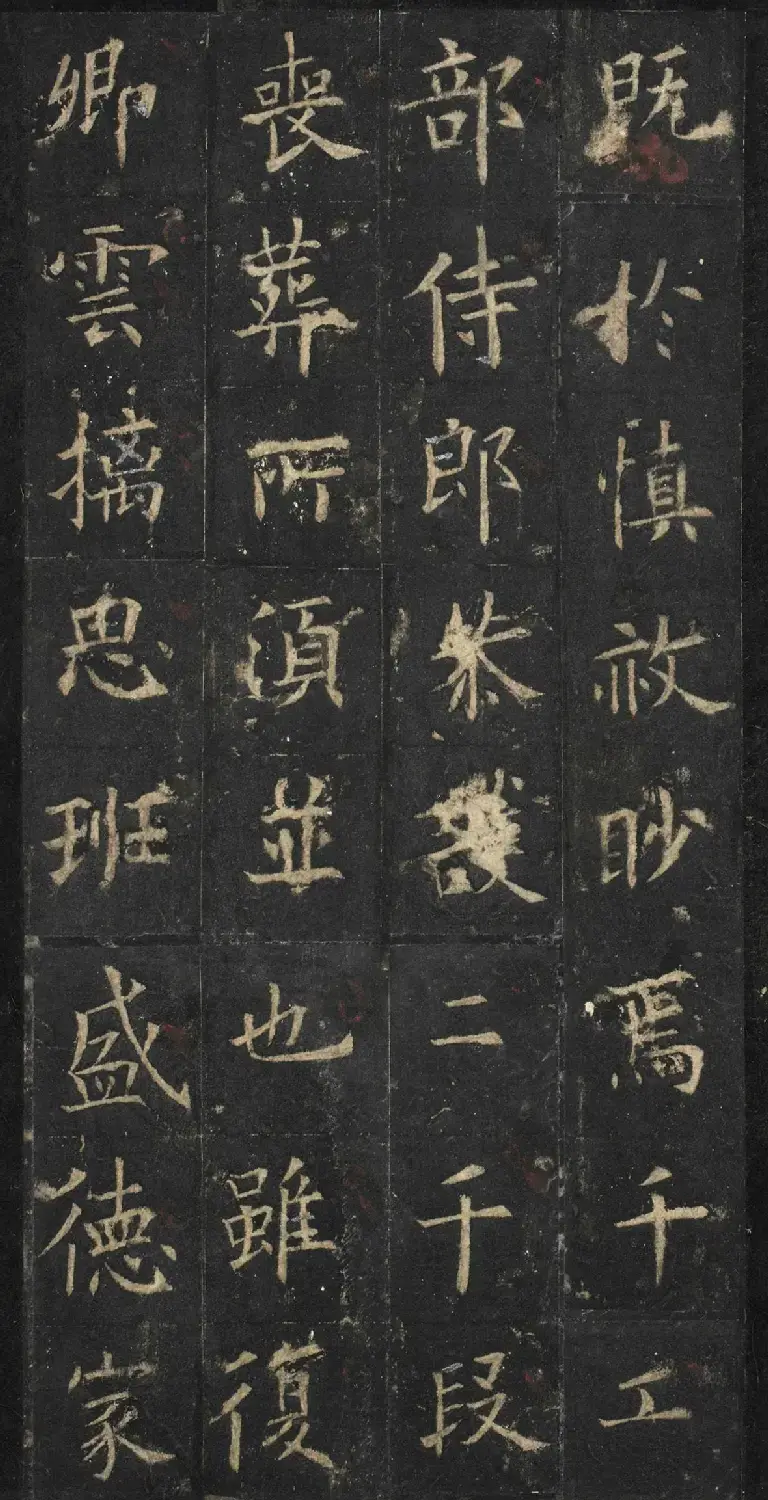 既於慎赦眇焉千工
部侍郎二千段
喪葬所須並也雖復
卿雲摛思班盛德家